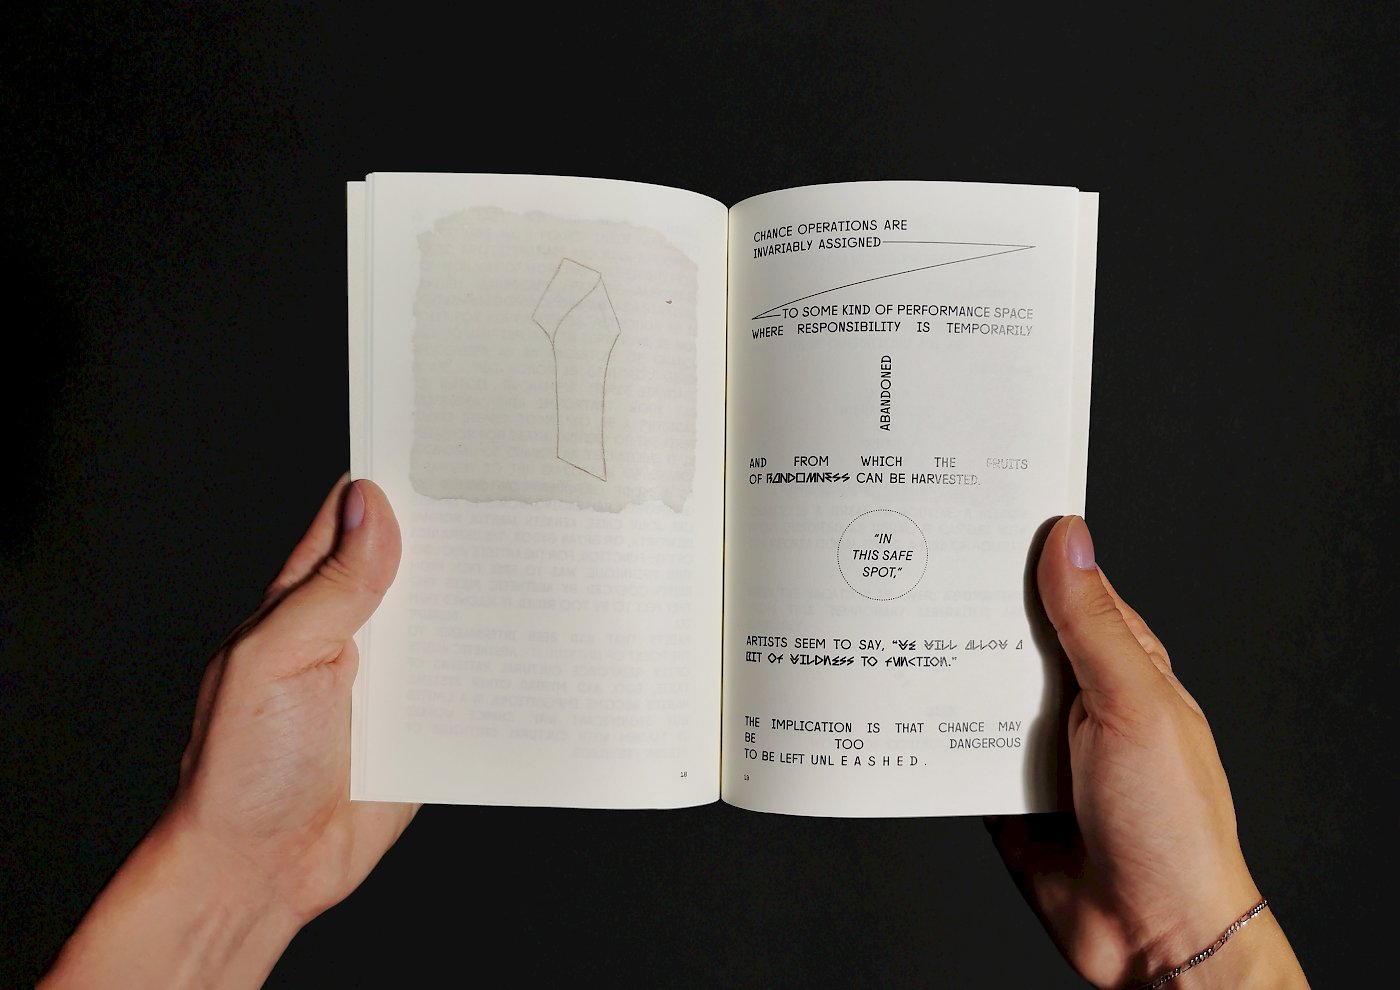 18
CHANCE OPERATIONS ARE
INVARIABLY ASSIGNED
TO SOME KIND OF PERFORMANCE SPACE
WHERE RESPONSIBILITY IS TEMPORARILY
ABANDONED
AND FROM WHICH THE FRUITS
OF RANDOMNESS CAN BE HARVESTED.
“IN
THIS SAFE
SPOT,”
ARTISTS SEEM TO SAY, “WE WILL ALLOW A
BIT OF WILDNESS TO FUNCTION.”
THE IMPLICATION IS THAT CHANCE MAY
BE TOO DANGEROUS
TO BE LEFT UNLEASHED.
19